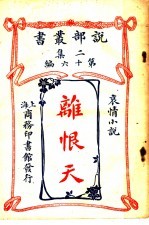 説部叢書
第二集
十六編
哀情小說
離恨天
上海商務印書館發行